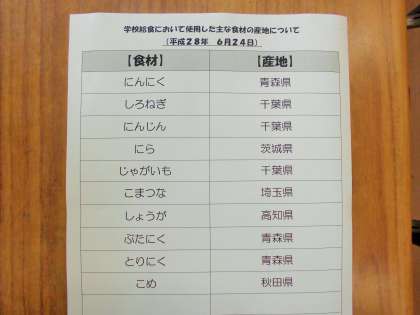 学校給食において使用した主な食材の産地について
(平成28年 6月24日)
【食材】 【産地】
にんにく 青森県
しろねぎ 千葉県
にんじん 千葉県
にら 茨城県
じゃがいも 千葉県
こまつな 埼玉県
しょうが 高知県
ぶたにく 青森県
とりにく 青森県
こめ 秋田県